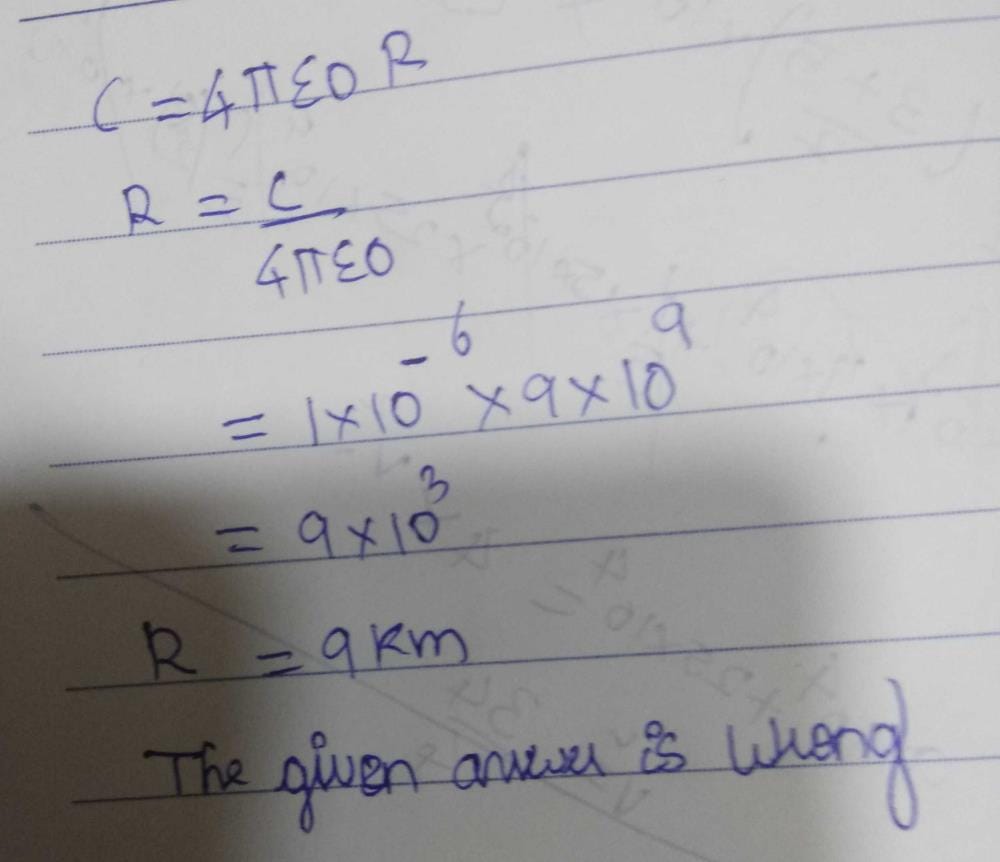 C = 4πε0 R
R = C / 4πε0
= 1×10^-6 × 9×10^9
= 9×10^3
R = 9 Km
The given answer is wrong